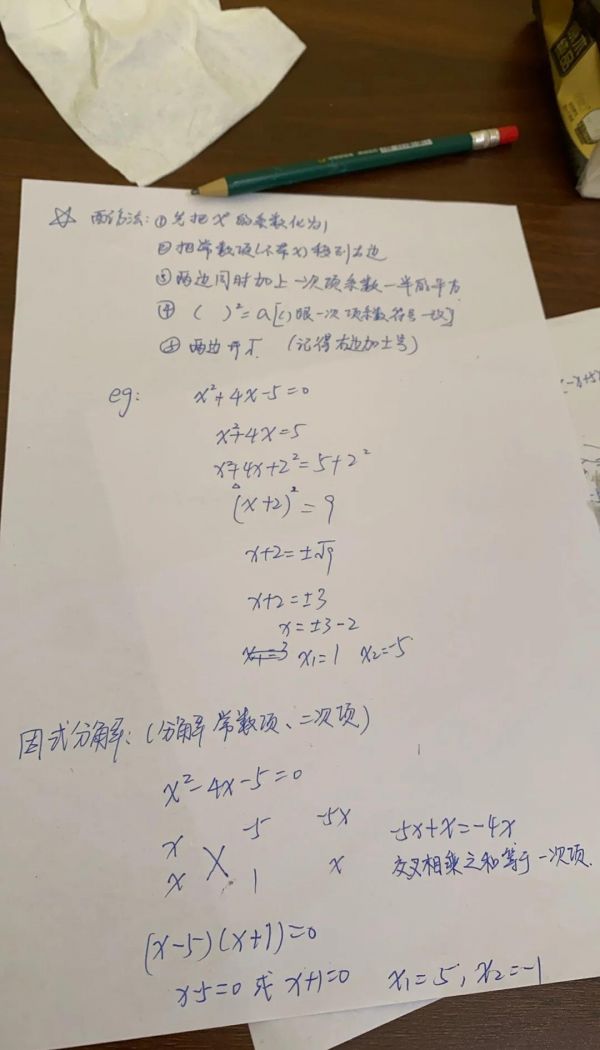 ☆ 配方法: ① 先把 x² 的系数化为1
② 把常数项(不带x)移到右边
③ 两边同时加上一次项系数一半的平方
④ ( )² = a [( )跟一次项系数符号一致]
⑤ 两边开√ (记得右边加±号)
eg: x²+4x-5=0
x²+4x=5
x²+4x+2²=5+2²
(x+2)²=9
x+2=±√9
x+2=±3
x=±3-2
x₁=3 x₁=1 x₂=-5
因式分解: (分解常数项、二次项)
x²-4x-5=0
x -5 -5x -5x+x=-4x
x 1 x 交叉相乘之和等于一次项.
(x-5)(x+1)=0
x-5=0 或 x+1=0 x₁=5, x₂=-1